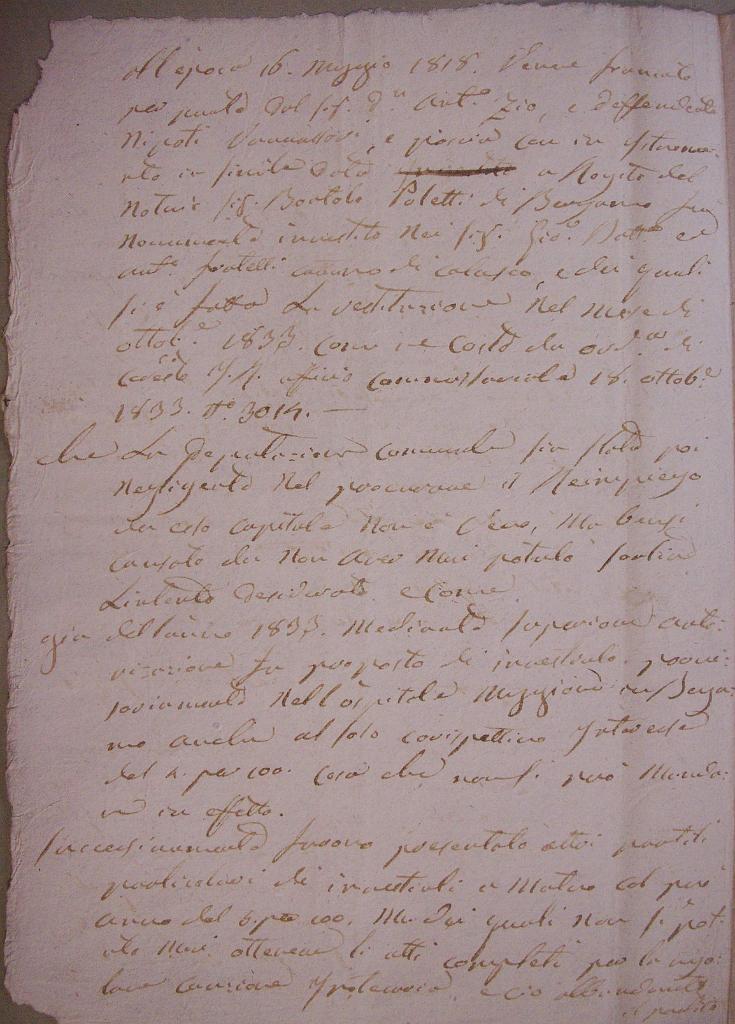 all'epoca 16. Maggio 1818. Venne francato
per parte del Sig. Dn Anto. Zio, e deffendente
Nipoti e poscia con in istrome
nto in simile data a Rogito del
Notaio Sig. Bortolo Poletti di Bergamo fu
Novamente investito nei Sig. Gio. Batta ed
anto. fratelli di e dei quali
si è fatta La restituzione Nel Mese di
ottob.e 1833. come ne Costa da ord. di
Codesto I. R. officio Commissariale 18. ottob.e
1833. N.o 3014. —
che La Deputazione Comunale sia stata poi
Negligente Nel procurare il Reimpiego
di esso Capitale Non è Vero, Ma bensi
Causato da Non aver Mai potuto sortire
L'intento desiderato. e come
già dell'anno 1833. Mediante Superiore auto:
rizazione fu proposto di investirlo provi:
soriamente Nell'ospitale Maggiore in Berga:
mo anche al solo corispettivo Interesse
del 4. per 100. Cosa che non si può Manda:
re in effetto.
Successivamente furono presentato altri partiti
particolari di investirli a Mutuo col pur
anno del 5. per 100. Ma dei quali Non si pot:
uto Mai ottenere li atti completi per la rego:
lare Cauzione Ipotecaria, e ciò abbandonato
il partito